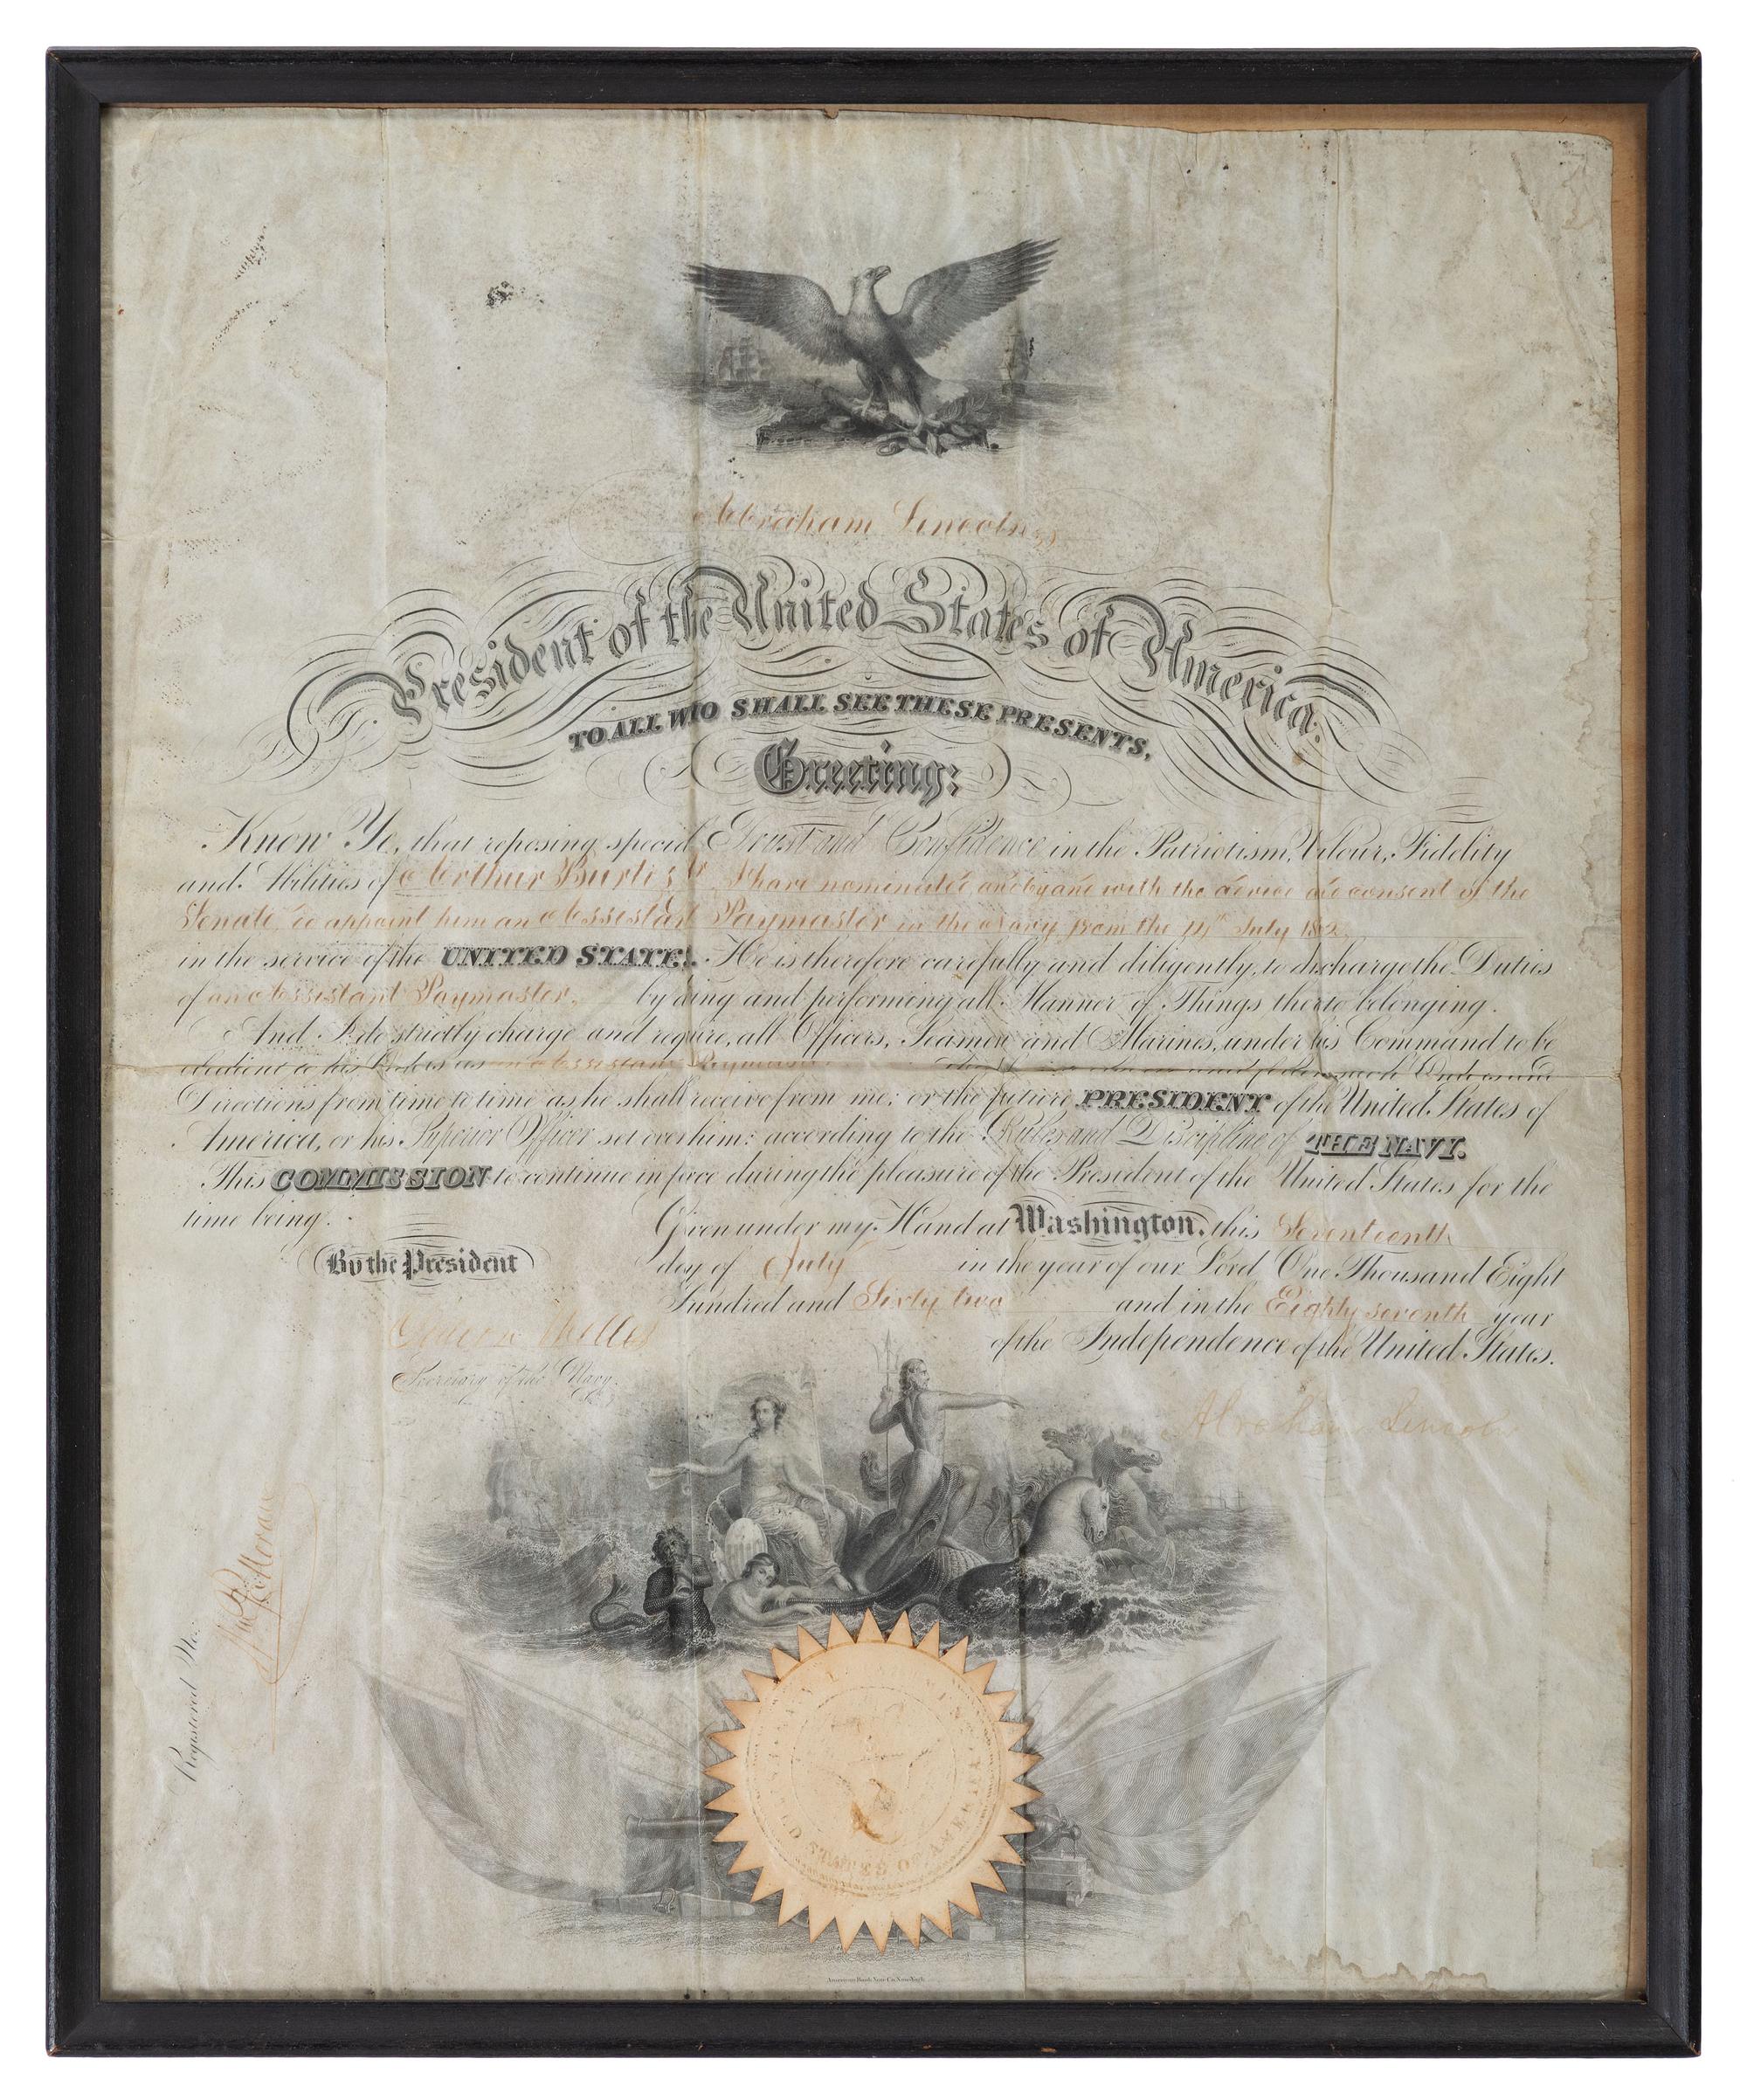 Abraham Lincoln,
President of the United States of America.
TO ALL WHO SHALL SEE THESE PRESENTS,
Greeting:
Know Ye, that reposing special Trust and Confidence in the Patriotism, Valour, Fidelity
and Abilities of Arthur Burtis Jr I have nominated and by and with the advice and consent of the
Senate, do appoint him an Assistant Paymaster in the Navy from the 14th July 1862
in the service of the UNITED STATES. He is therefore carefully and diligently, to discharge the Duties
of an Assistant Paymaster, by doing and performing all Manner of Things thereto belonging.
And I do strictly charge and require, all Officers, Seamen and Marines, under his Command to be
obedient to his Orders as an Assistant Paymaster And Orders and
Directions from time to time as he shall receive from me: or the future PRESIDENT of the United States of
America, or his Superior Officer set over him: according to the Rules and Discipline of THE NAVY.
This COMMISSION to continue in force during the pleasure of the President of the United States for the
time being.
Given under my Hand at Washington, this Seventeenth
day of July in the year of our Lord One Thousand Eight
Hundred and Sixty two and in the Eighty seventh year
of the Independence of the United States.
By the President
Gideon Welles
Secretary of the Navy.
Abraham Lincoln
Registered No.
UNITED STATES OF AMERICA
American Bank Note Co. New York